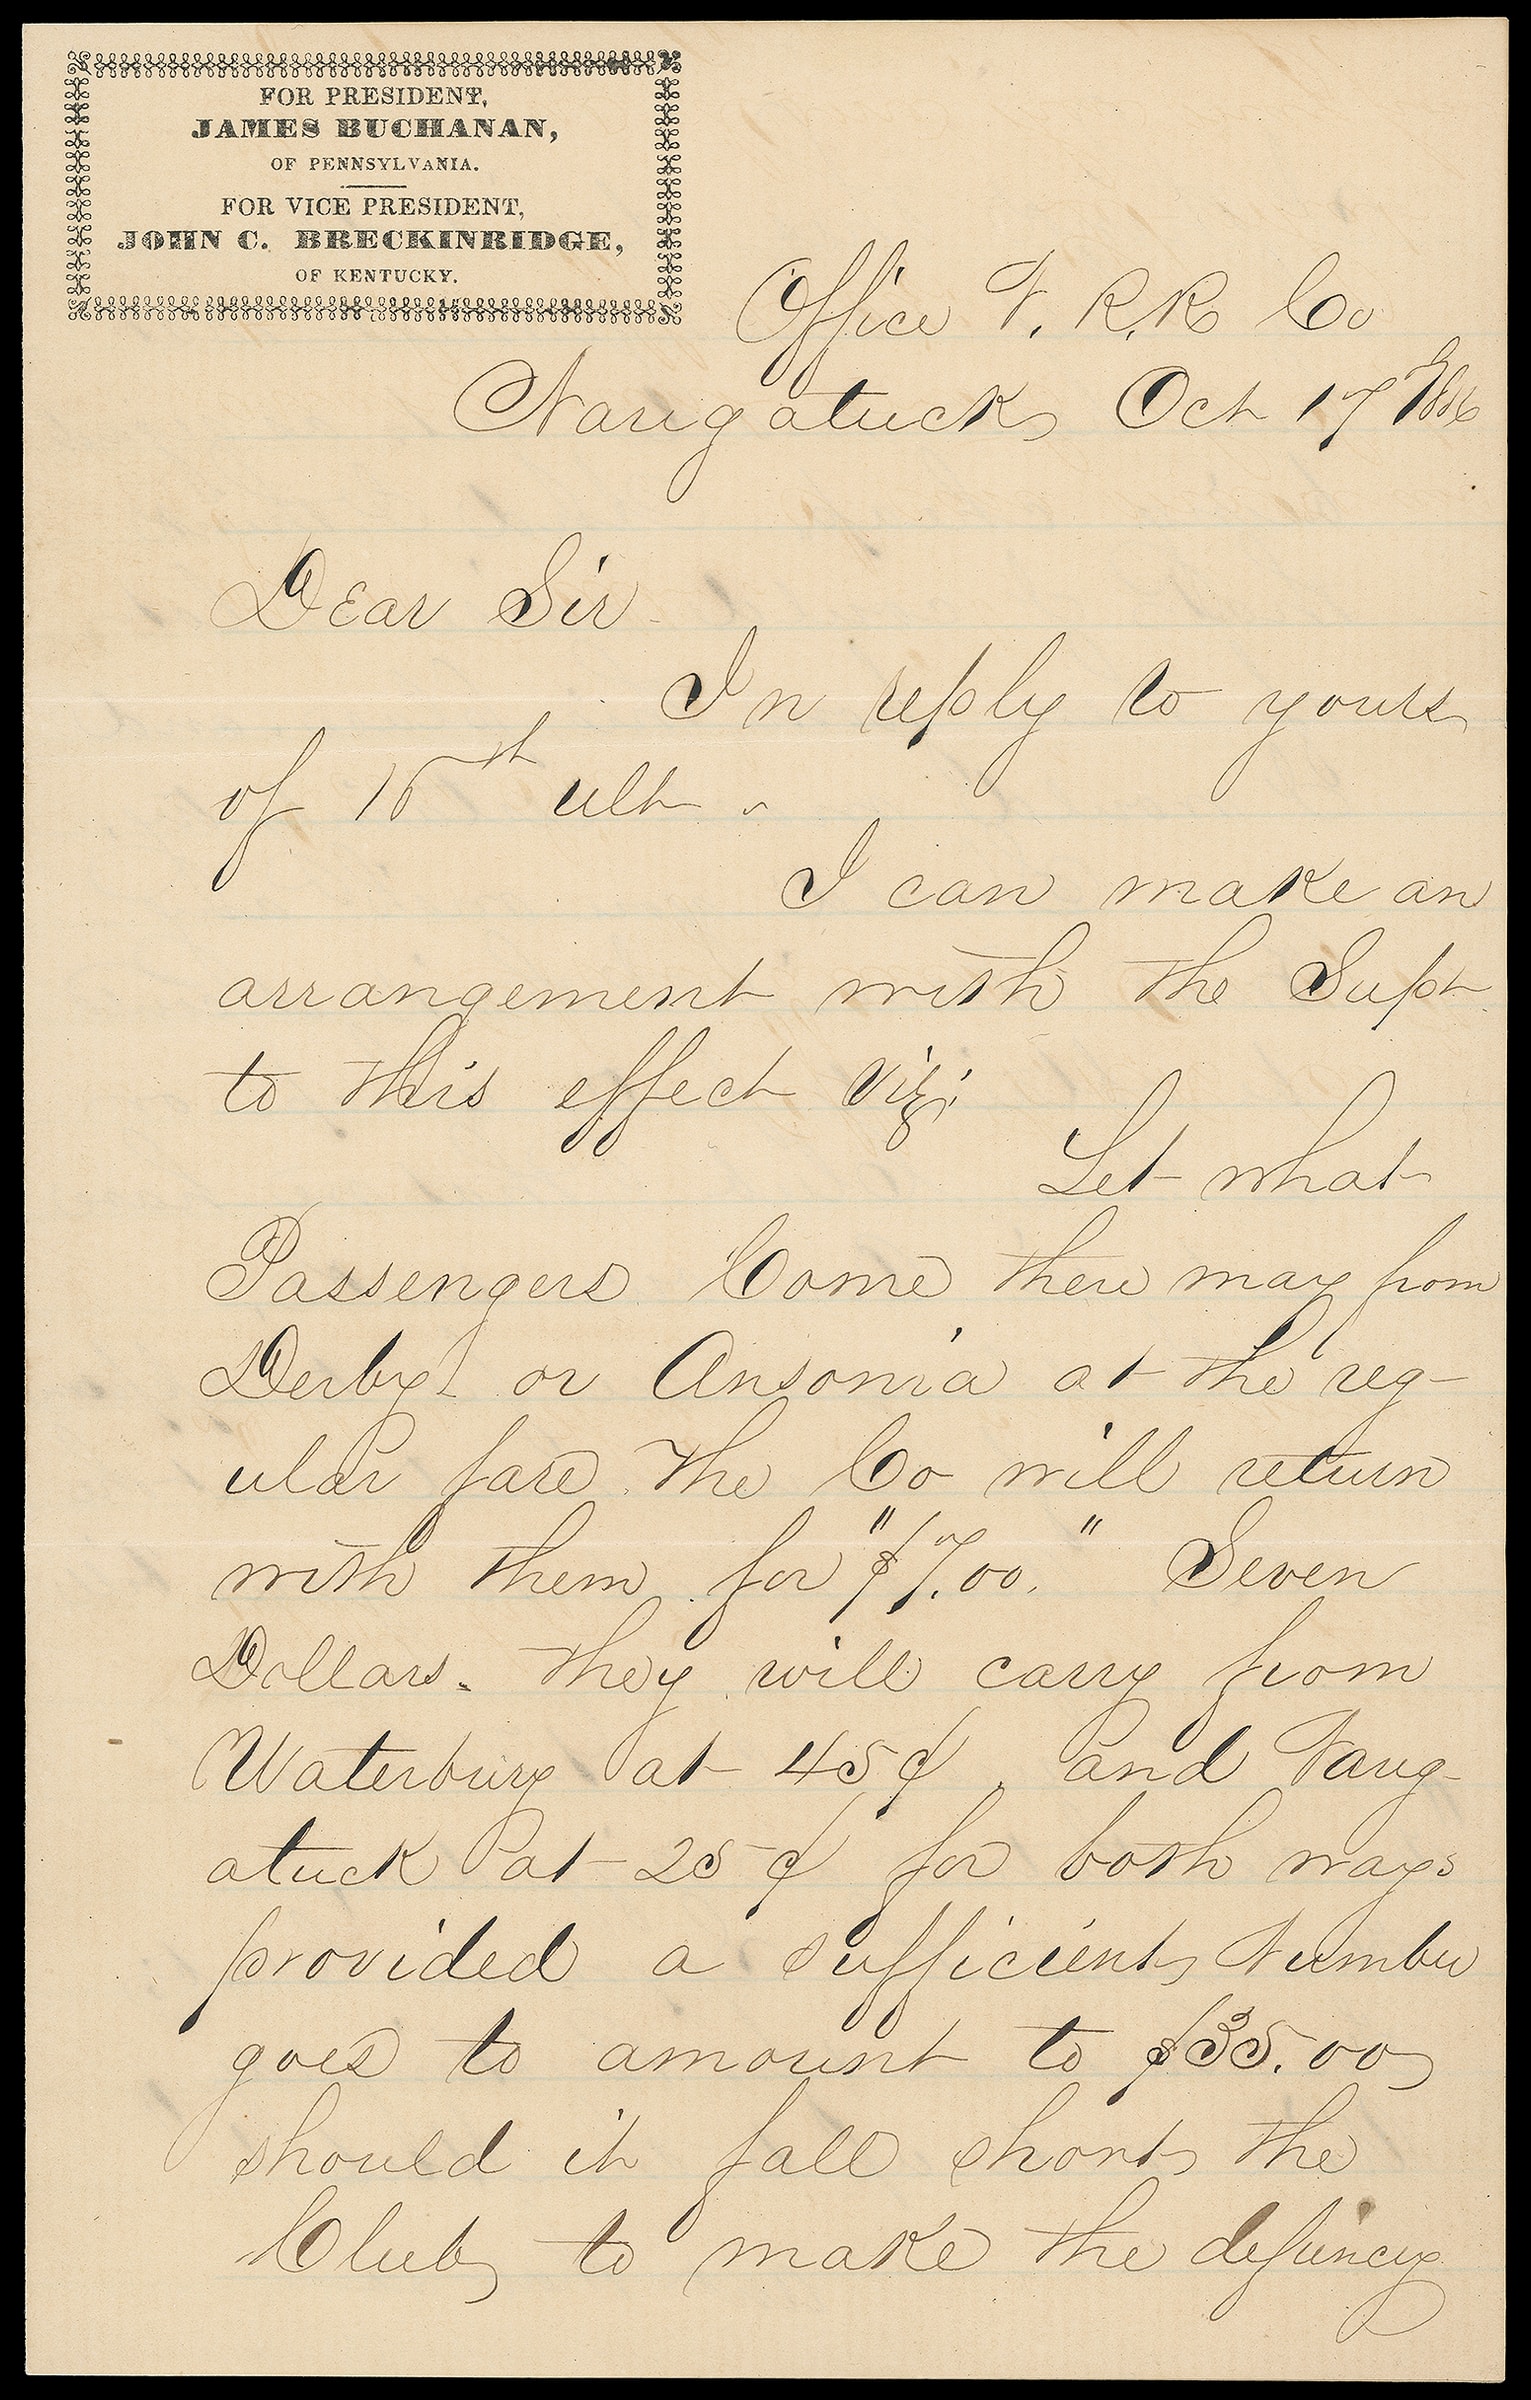 FOR PRESIDENT,
JAMES BUCHANAN,
OF PENNSYLVANIA.
FOR VICE PRESIDENT,
JOHN C. BRECKINRIDGE,
OF KENTUCKY.
Office N. R. R. Co
Naugatuck Oct 17 1856
Dear Sir
In reply to yours
of 15th ult
I can make an
arrangement with the Supt
to this effect Viz;
Let what
Passengers Come there may from
Derby or Ansonia at the reg-
ular fare. The Co will return
with them for "$7.00." Seven
Dollars. They will carry from
Waterbury at 45¢, and Naug-
atuck at 25¢ for both ways
provided a sufficient Number
goes to amount to $35.00
should it fall short the
Club to make the defiency